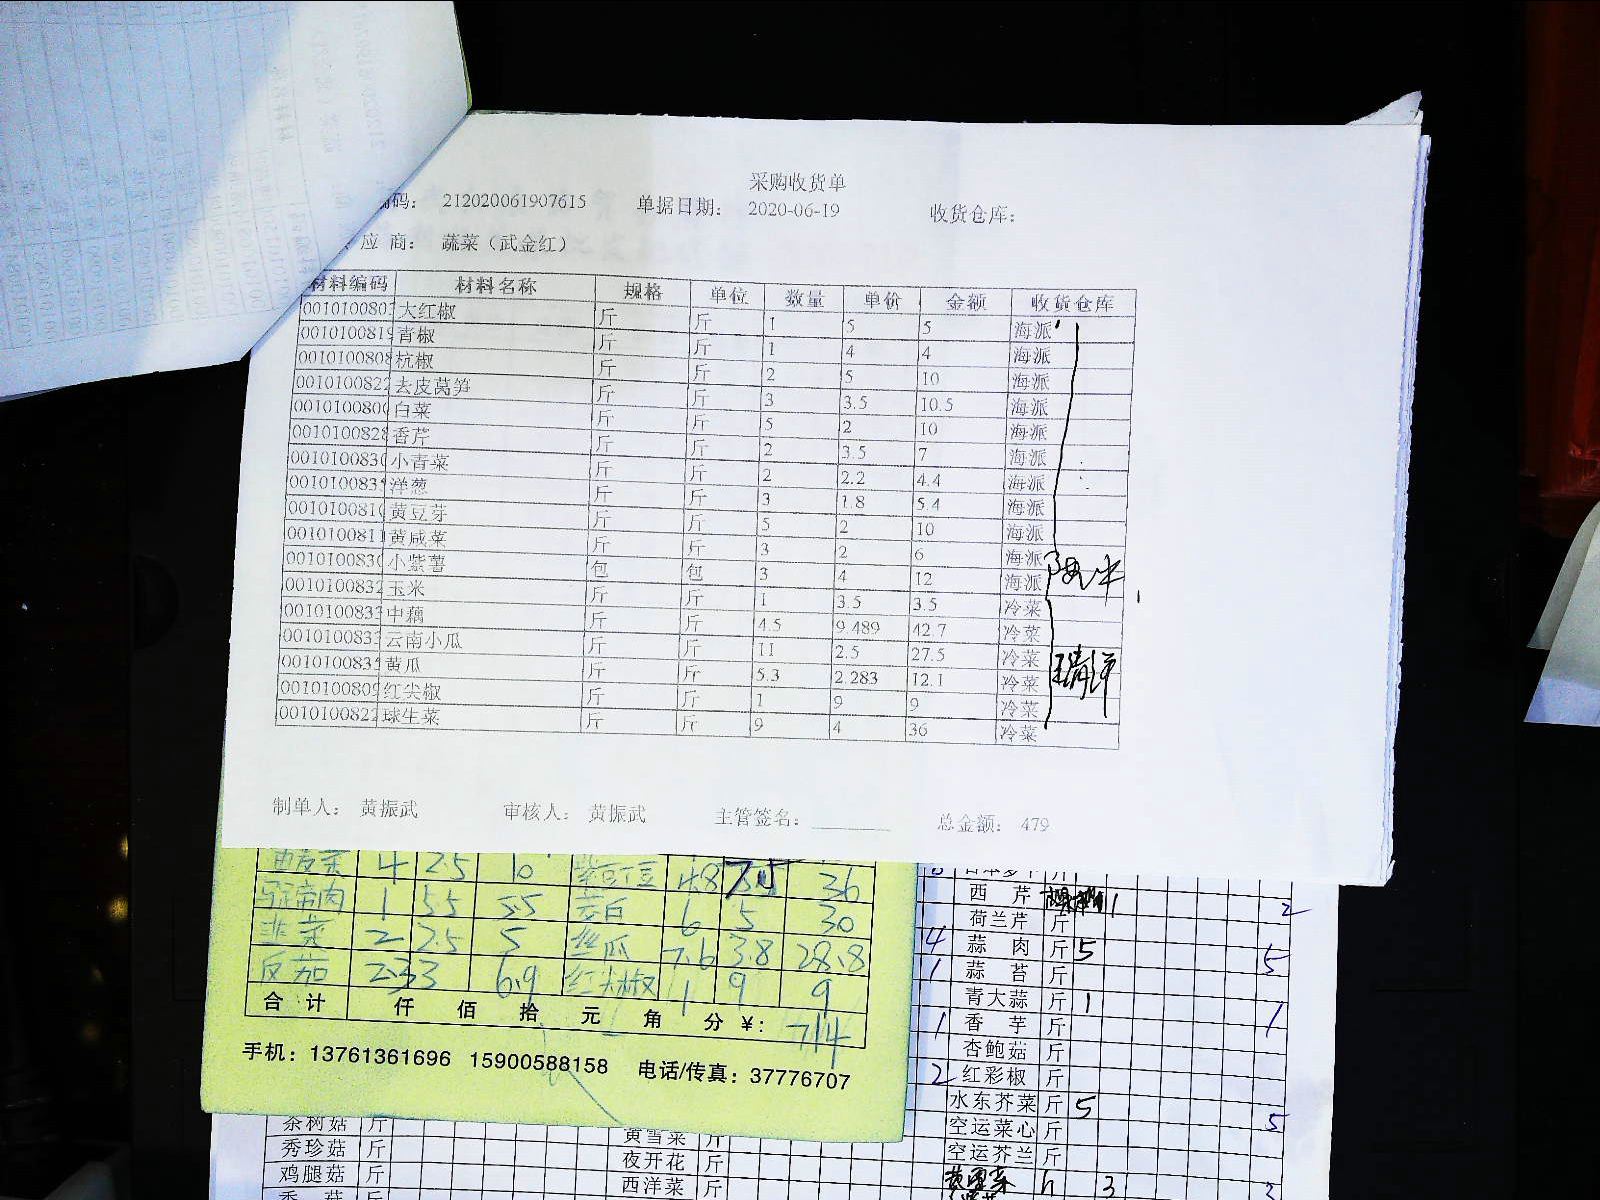 采购收货单
编码： 212020061907615 单据日期： 2020-06-19 收货仓库：
应商： 蔬菜（武金红）
材料编码 材料名称 规格 单位 数量 单价 金额 收货仓库
001010080 大红椒 斤 斤 1 5 5 海派
001010081 青椒 斤 斤 1 4 4 海派
0010100808 杭椒 斤 斤 2 5 10 海派
0010100822 去皮莴笋 斤 斤 3 3.5 10.5 海派
001010080 白菜 斤 斤 5 2 10 海派
001010082 香芹 斤 斤 2 3.5 7 海派
001010083 小青菜 斤 斤 2 2.2 4.4 海派
001010083 洋葱 斤 斤 3 1.8 5.4 海派
001010081 黄豆芽 斤 斤 5 2 10 海派
001010081 黄咸菜 斤 斤 3 2 6 海派
001010083 小紫薯 包 包 3 4 12 海派
001010083 玉米 斤 斤 1 3.5 3.5 冷菜
001010083 中藕 斤 斤 4.5 9.489 42.7 冷菜
001010083 云南小瓜 斤 斤 11 2.5 27.5 冷菜
001010083 黄瓜 斤 斤 5.3 2.283 12.1 冷菜
001010080 红尖椒 斤 斤 1 9 9 冷菜
001010082 球生菜 斤 斤 9 4 36 冷菜
王清洋
制单人： 黄振武 审核人： 黄振武 主管签名： 总金额： 479
4 2.5 10 4.8 7.5 36
1 55 55 茭白 6 5 30
韭菜 2 2.5 5 丝瓜 7.6 3.8 28.8
反茄 2.3 3 6.9 红尖椒 1 9 9
合计 仟 佰 拾 元 角 分 ¥： 714
手机：13761361696 15900588158 电话/传真：37776707
西芹 1 2
荷兰芹 斤
4 蒜肉 斤 5 5
1 蒜苔 斤
青大蒜 斤 1 1
1 香芋 斤
杏鲍菇 斤
2 红彩椒 斤
水东芥菜 斤 5 5
空运菜心 斤
空运芥兰 斤
茶树菇 斤 黄雪菜 斤
秀珍菇 斤 夜开花 斤
鸡腿菇 斤 西洋菜 斤
3